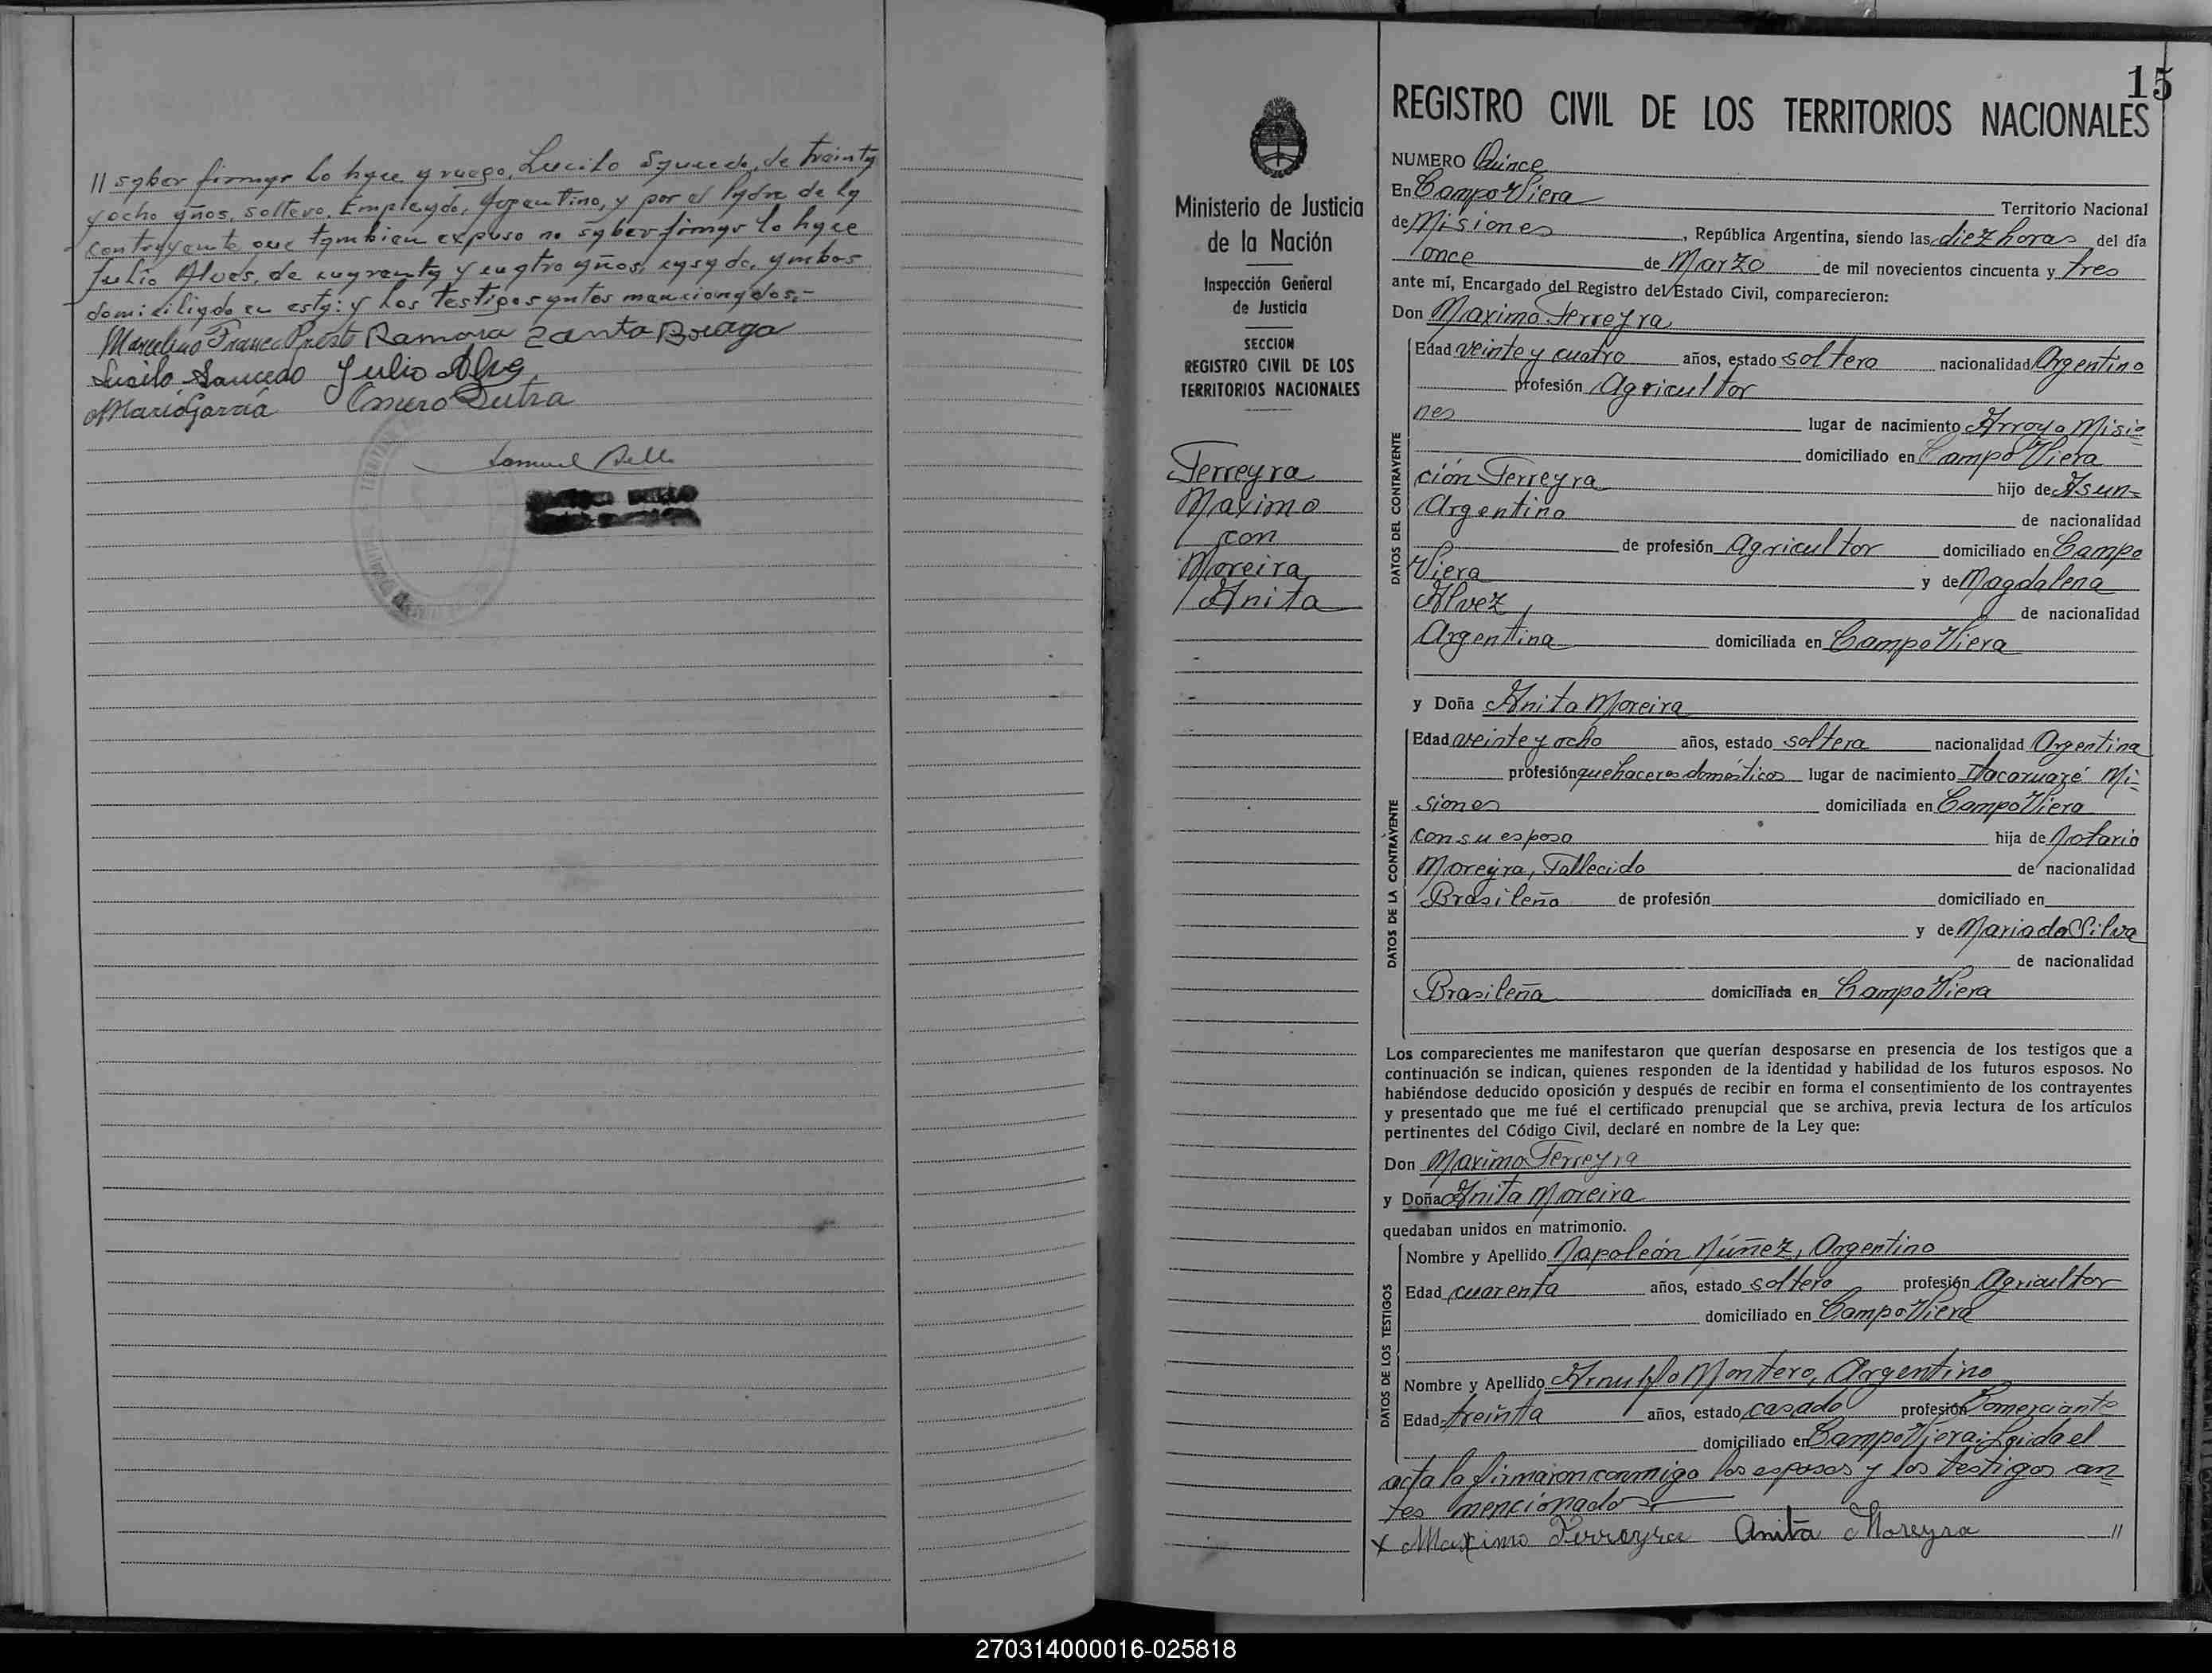 // saber firmar lo hace y ruego, Lucilo Saucedo, de treinta
y ocho años, soltero, Empleado, Argentino, y por el Padre de la
contrayente que tambien expuso no saber firmar lo hace
Julio Alves, de cuarenta y cuatro años, casado, ambos
domiciliado en esta: y los testigos antes mencionados.-
Marcelino Franco Ramona
Lucilo Saucedo Julio Alve
Mario Garcia Omero Dutra
Samuel Bello
15
REGISTRO CIVIL DE LOS TERRITORIOS NACIONALES
Ministerio de Justicia
de la Nación
Inspección General
de Justicia
SECCION
REGISTRO CIVIL DE LOS
TERRITORIOS NACIONALES
Ferreyra
Maximo
con
Moreira
Anita
NUMERO Quince
En Campo Viera Territorio Nacional
de Misiones, República Argentina, siendo las diez horas del día
once de Marzo de mil novecientos cincuenta y tres
ante mí, Encargado del Registro del Estado Civil, comparecieron:
Don Maximo Ferreyra
DATOS DEL CONTRAYENTE
Edad veinte y cuatro años, estado soltero nacionalidad Argentino
profesión Agricultor
nes lugar de nacimiento Arroyo Misio
domiciliado en Campo Viera
ción Ferreyra hijo de Asun=
Argentino de nacionalidad
de profesión Agricultor domiciliado en Campo
Viera y de Magdalena
Alvez de nacionalidad
Argentina domiciliada en Campo Viera
y Doña Anita Moreira
DATOS DE LA CONTRAYENTE
Edad veinte y ocho años, estado soltera nacionalidad Argentina
profesión quehaceres domésticos lugar de nacimiento Itacaruaré Mi=
siones domiciliada en Campo Viera
con su esposo hija de Notario
Moreyra, Fallecido de nacionalidad
Brasileño de profesión domiciliado en
y de Maria da Silva
de nacionalidad
Brasileña domiciliada en Campo Viera
Los comparecientes me manifestaron que querían desposarse en presencia de los testigos que a
continuación se indican, quienes responden de la identidad y habilidad de los futuros esposos. No
habiéndose deducido oposición y después de recibir en forma el consentimiento de los contrayentes
y presentado que me fué el certificado prenupcial que se archiva, previa lectura de los artículos
pertinentes del Código Civil, declaré en nombre de la Ley que:
Don Maximo Ferreyra
y Doña Anita Moreira
quedaban unidos en matrimonio.
DATOS DE LOS TESTIGOS
Nombre y Apellido Napoleón Núñez, Argentino
Edad cuarenta años, estado soltero profesión Agricultor
domiciliado en Campo Viera
Nombre y Apellido Arnulfo Montero, Argentino
Edad treinta años, estado casado profesión Comerciante
domiciliado en Campo Viera: Leida el
acta la firmaron conmigo los esposos y los testigos an
tes mencionados
x Maximo Ferreyra Anita Moreyra //
270314000016-025818